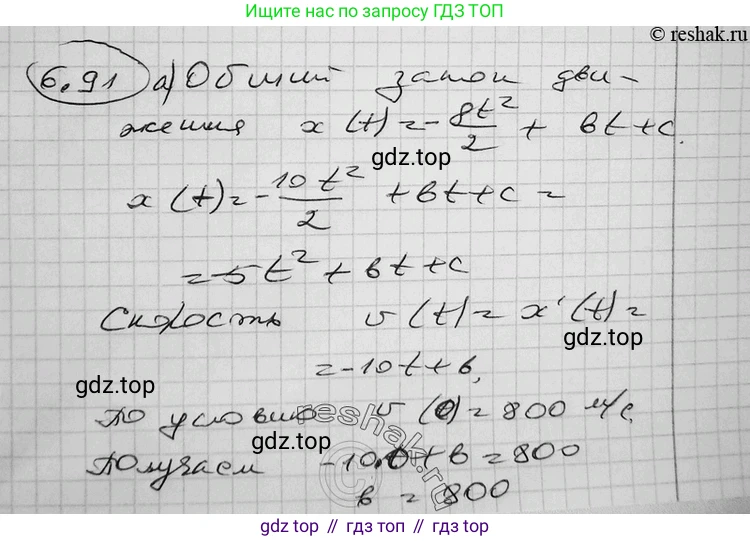 Ищите нас по запросу ГДЗ ТОП
© reshak.ru
6.91 а) Общий закон дви-
жения x(t) = -gt²/2 + вt+c.
gdz.top
x(t) = -10t²/2 + вt+c =
= -5t² + вt+c
Скорость v(t) = x'(t) =
gdz.top
= -10t+в,
gdz.top
По условию v(0) = 800 м/с.
reshak.ru
gdz.top
Получаем -10·0+в = 800
в = 800
gdz top // гдз топ // gdz.top